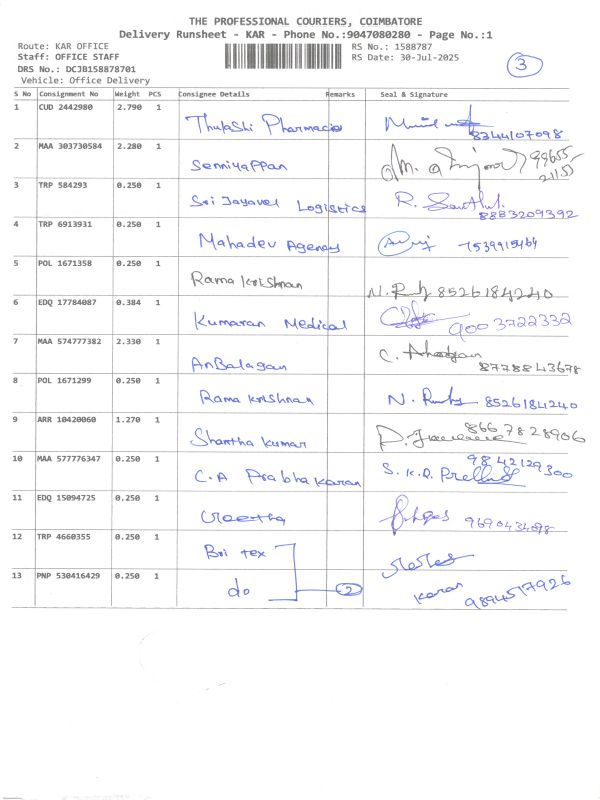 THE PROFESSIONAL COURIERS, COIMBATORE
Delivery Runsheet - KAR - Phone No.:9047080280 - Page No.:1
Route: KAR OFFICE RS No.: 1588787
Staff: OFFICE STAFF RS Date: 30-Jul-2025
DRS No.: DCJB158878701
Vehicle: Office Delivery
3
S No Consignment No Weight PCS Consignee Details Remarks Seal & Signature
1 CUD 2442980 2.790 1 Thulashi Pharmacie
8344107098
2 MAA 303730584 2.280 1 Senniyappan 99655
21155
3 TRP 584293 0.250 1 Sri Jayavel Logistics R.
8883209392
4 TRP 6913931 0.250 1 Mahadev Agency 7539915464
5 POL 1671358 0.250 1 Rama Krishnan N. 8526184240
6 EDQ 17784087 0.384 1 Kumaran Medical 900 3722332
7 MAA 574777382 2.330 1 AnBalagan C.
8778843678
8 POL 1671299 0.250 1 Rama Krishnan N. 8526184240
9 ARR 10420060 1.270 1 Shantha Kumar 866 7828906
10 MAA 577776347 0.250 1 C.A Prabhakaran 9842129300
S. K.
11 EDQ 15094725 0.250 1 9690434098
12 TRP 4660355 0.250 1 Bri tex
13 PNP 530416429 0.250 1 do 2 Karan 9894517926